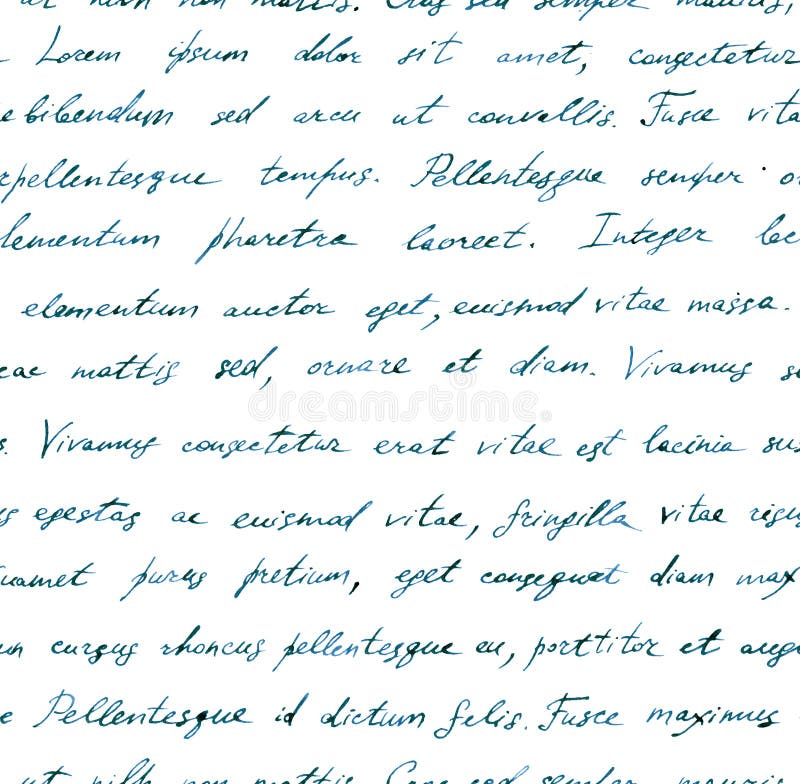 ut nibh non mattis. Cras sed semper mauris,
Lorem ipsum dolor sit amet, consectetur
e bibendum sed arcu ut convallis. Fusce vita
rpellentesque tempus. Pellentesque semper o
lementum pharetra laoreet. Integer lac
elementum auctor eget, euismod vitae massa.
cac mattis sed, ornare et diam. Vivamus s
s. Vivamus consectetur erat vitae est lacinia sus
us egestas ac euismod vitae, fringilla vitae risus
uamet purus pretium, eget consequat diam max
un cursus rhoncus pellentesque eu, porttitor et aug
e Pellentesque id dictum felis. Fusce maximus
ut nibh non mattis. Cras sed semper mauris
dreamstime